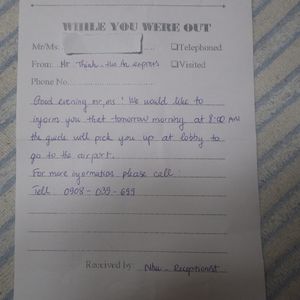 WHILE YOU WERE OUT
Mr/Ms: ☐Telephoned
From: Mr Thinh - ☐Visited
Phone No
Good evening mr,ms ! We would like to
inform you that tomorrow morning at 8:00 AM
the guide will pick you up at lobby to
go to the airport.
For more information please call :
Tell : 0908 - 039 - 659
Received by: Như - Receptionist